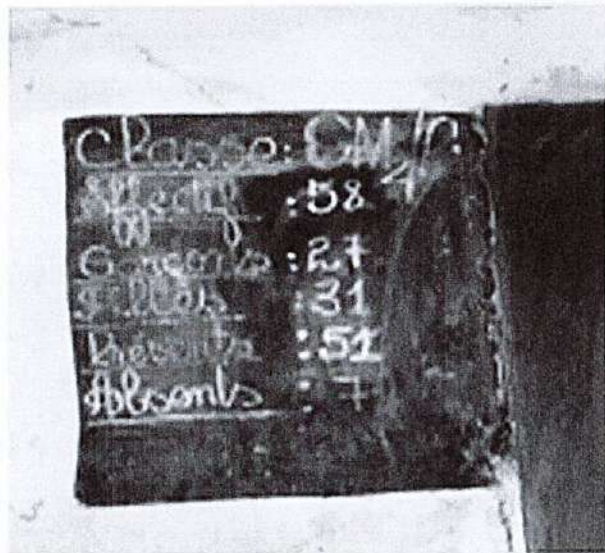 Classe: CM1/C
Effectif : 58
Garçons : 27
Filles : 31
Présents : 51
Absents : 7